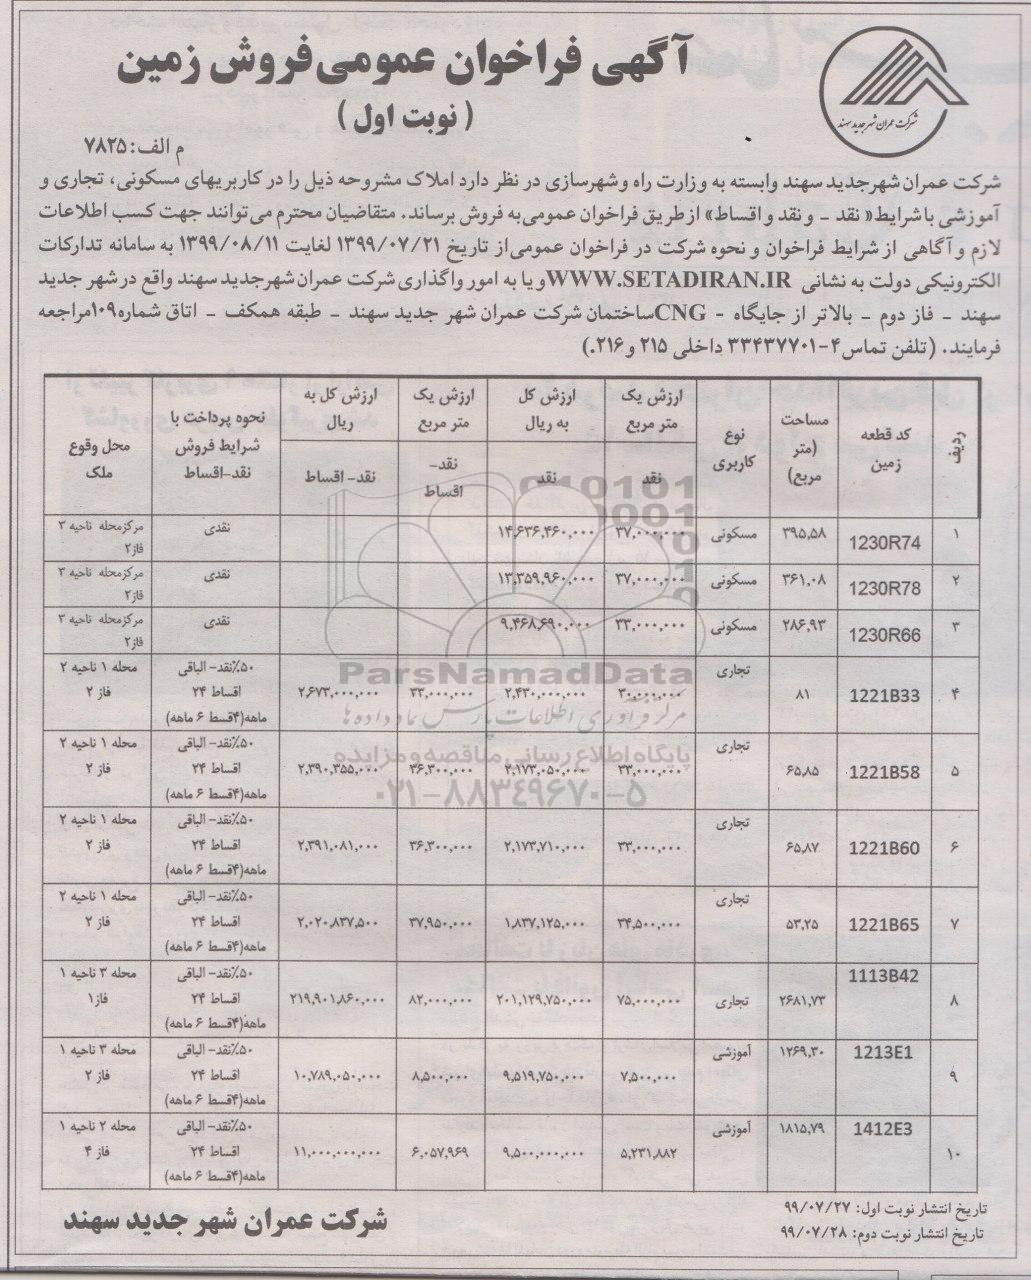 شرکت عمران شهر جدید سهند
آگهی فراخوان عمومی فروش زمین
( نوبت اول )
م الف: ۷۸۲۵
شرکت عمران شهرجدید سهند وابسته به وزارت راه وشهرسازی در نظر دارد املاک مشروحه ذیل را در کاربریهای مسکونی، تجاری و
آموزشی با شرایط« نقد - و نقد و اقساط» از طریق فراخوان عمومی به فروش برساند. متقاضیان محترم می‌توانند جهت کسب اطلاعات
لازم و آگاهی از شرایط فراخوان و نحوه شرکت در فراخوان عمومی از تاریخ ۱۳۹۹/۰۷/۲۱ لغایت ۱۳۹۹/۰۸/۱۱ به سامانه تدارکات
الکترونیکی دولت به نشانی WWW.SETADIRAN.IR و یا به امور واگذاری شرکت عمران شهرجدید سهند واقع در شهر جدید
سهند - فاز دوم - بالاتر از جایگاه - CNG ساختمان شرکت عمران شهر جدید سهند - طبقه همکف - اتاق شماره ۱۰۹ مراجعه
فرمایند. (تلفن تماس ۴-۳۳۴۳۷۷۰۱ داخلی ۲۱۵ و ۲۱۶.)
ردیف | کد قطعه زمین | مساحت (متر مربع) | نوع کاربری | ارزش یک متر مربع | ارزش کل به ریال | ارزش یک متر مربع | ارزش کل به ریال | نحوه پرداخت با شرایط فروش نقد-اقساط | محل وقوع ملک
نقد | نقد | نقد- اقساط | نقد- اقساط
۱ | 1230R74 | ۳۹۵,۵۸ | مسکونی | ۳۷,۰۰۰,۰۰۰ | ۱۴,۶۳۶,۴۶۰,۰۰۰ | نقدی | مرکزمحله ناحیه ۳ فاز۲
۲ | 1230R78 | ۳۶۱,۰۸ | مسکونی | ۳۷,۰۰۰,۰۰۰ | ۱۳,۳۵۹,۹۶۰,۰۰۰ | نقدی | مرکزمحله ناحیه ۳ فاز۲
۳ | 1230R66 | ۲۸۶,۹۳ | مسکونی | ۳۳,۰۰۰,۰۰۰ | ۹,۴۶۸,۶۹۰,۰۰۰ | نقدی | مرکزمحله ناحیه ۳ فاز۲
۴ | 1221B33 | ۸۱ | تجاری | ۳۰,۰۰۰,۰۰۰ | ۲,۴۳۰,۰۰۰,۰۰۰ | ۳۳,۰۰۰,۰۰۰ | ۲,۶۷۳,۰۰۰,۰۰۰ | ۵۰٪نقد- الباقی اقساط ۲۴ ماهه(۴قسط ۶ ماهه) | محله ۱ ناحیه ۲ فاز ۲
۵ | 1221B58 | ۶۵,۸۵ | تجاری | ۳۳,۰۰۰,۰۰۰ | ۲,۱۷۳,۰۵۰,۰۰۰ | ۳۶,۳۰۰,۰۰۰ | ۲,۳۹۰,۳۵۵,۰۰۰ | ۵۰٪نقد- الباقی اقساط ۲۴ ماهه(۴قسط ۶ ماهه) | محله ۱ ناحیه ۲ فاز ۲
۶ | 1221B60 | ۶۵,۸۷ | تجاری | ۳۳,۰۰۰,۰۰۰ | ۲,۱۷۳,۷۱۰,۰۰۰ | ۳۶,۳۰۰,۰۰۰ | ۲,۳۹۱,۰۸۱,۰۰۰ | ۵۰٪نقد- الباقی اقساط ۲۴ ماهه(۴قسط ۶ ماهه) | محله ۱ ناحیه ۲ فاز ۲
۷ | 1221B65 | ۵۳,۲۵ | تجاری | ۳۴,۵۰۰,۰۰۰ | ۱,۸۳۷,۱۲۵,۰۰۰ | ۳۷,۹۵۰,۰۰۰ | ۲,۰۲۰,۸۳۷,۵۰۰ | ۵۰٪نقد- الباقی اقساط ۲۴ ماهه(۴قسط ۶ ماهه) | محله ۱ ناحیه ۲ فاز ۲
۸ | 1113B42 | ۲۶۸۱,۷۳ | تجاری | ۷۵,۰۰۰,۰۰۰ | ۲۰۱,۱۲۹,۷۵۰,۰۰۰ | ۸۲,۰۰۰,۰۰۰ | ۲۱۹,۹۰۱,۸۶۰,۰۰۰ | ۵۰٪نقد- الباقی اقساط ۲۴ ماهه(۴قسط ۶ ماهه) | محله ۳ ناحیه ۱ فاز۱
۹ | 1213E1 | ۱۲۶۹,۳۰ | آموزشی | ۷,۵۰۰,۰۰۰ | ۹,۵۱۹,۷۵۰,۰۰۰ | ۸,۵۰۰,۰۰۰ | ۱۰,۷۸۹,۰۵۰,۰۰۰ | ۵۰٪نقد- الباقی اقساط ۲۴ ماهه(۴قسط ۶ ماهه) | محله ۳ ناحیه ۱ فاز ۲
۱۰ | 1412E3 | ۱۸۱۵,۷۹ | آموزشی | ۵,۲۳۱,۸۸۲ | ۹,۵۰۰,۰۰۰,۰۰۰ | ۶,۰۵۷,۹۶۹ | ۱۱,۰۰۰,۰۰۰,۰۰۰ | ۵۰٪نقد- الباقی اقساط ۲۴ ماهه(۴قسط ۶ ماهه) | محله ۲ ناحیه ۱ فاز ۴
ParsNamadData
مرکز فرآوری اطلاعات پارس نماد داده ها
پایگاه اطلاع رسانی مناقصه و مزایده
۰۲۱-۸۸۳۴۹۶۷۰-۵
تاریخ انتشار نوبت اول: ۹۹/۰۷/۲۷
تاریخ انتشار نوبت دوم: ۹۹/۰۷/۲۸
شرکت عمران شهر جدید سهند